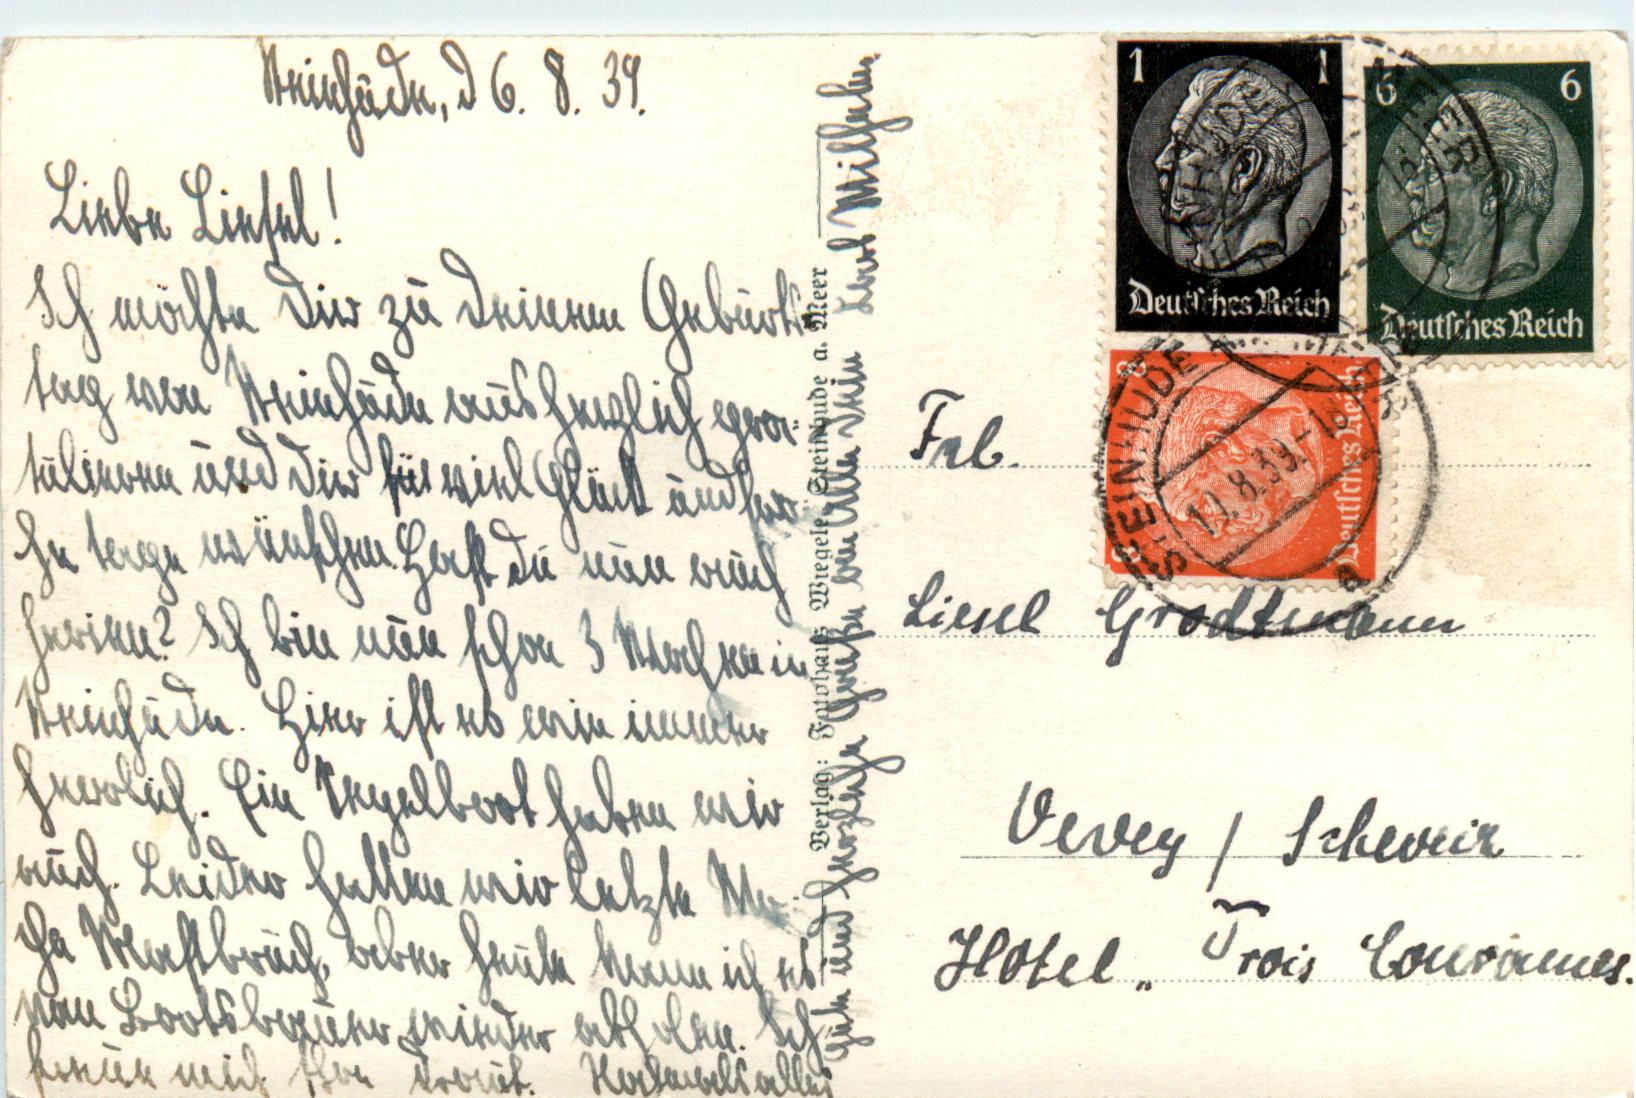 Steinhude, d 6. 8. 39.
Liebe Liesel!
Ich möchte Dir zu Deinem Geburts
tag von Steinhude aus herzlich gra-
tulieren und Dir für viel Glück und fro
he Tage wünschen. Hast Du nun auch
Ferien? Ich bin nun schon 3 Wochen in
Steinhude. Hier ist es wie immer
herrlich. Ein Segelboot haben wir
auch. Leider hatten wir letzte Wo-
che Mastbruch, aber heute kann ich es
vom Bootsbauer wieder abholen. Ich
freue mich schon drauf. Nochmals alles
Gute und herzliche Grüße von Allen Dein Wilhelm
Verlag: Fotohaus Wiegele Steinhude a. Meer
1 1
Deutsches Reich
6 6
Deutsches Reich
8 8
Deutsches Reich
STEINHUDE
10.8.39.-18
MEER
Frl.
Liesel Grodtmann
Vevey / Schweiz
Hotel „ Trois Couronnes.